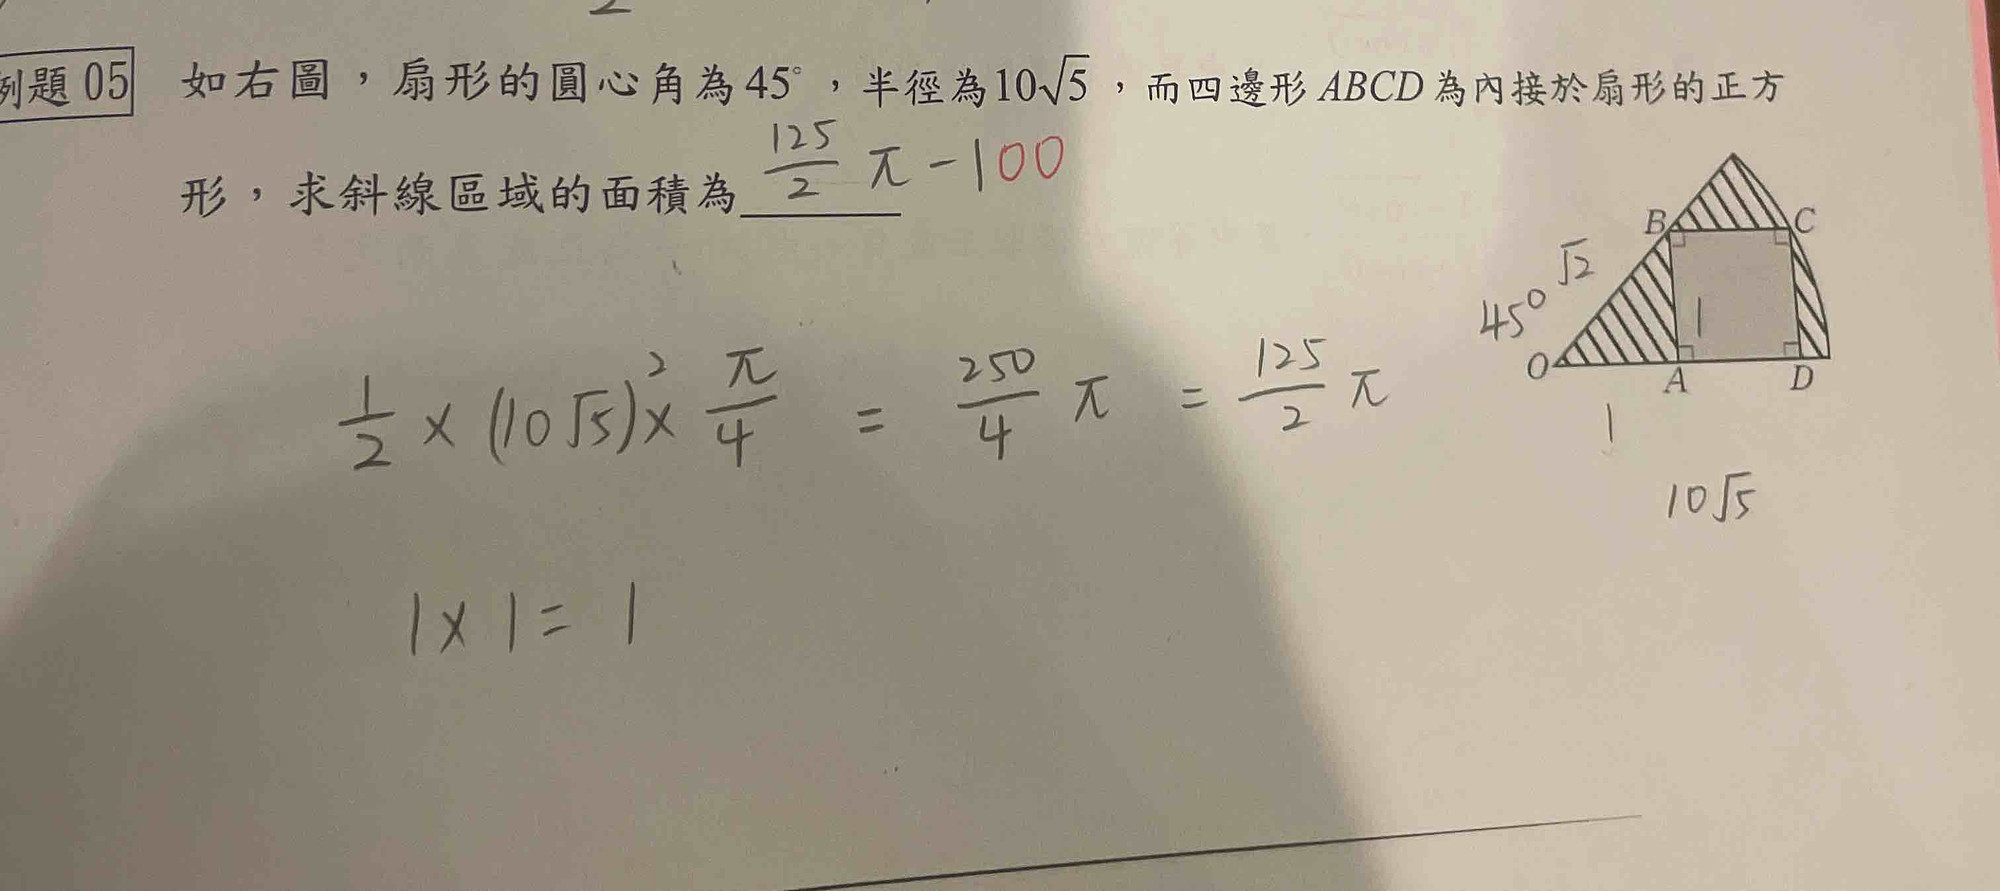 例題 05 如右圖，扇形的圓心角為45°，半徑為10√5，而四邊形ABCD為內接於扇形的正方
形，求斜線區域的面積為 125/2 π - 100
B C
√2
45°
1
O A D
1
10√5
1/2 × (10√5)² × π/4 = 250/4 π = 125/2 π
1 × 1 = 1